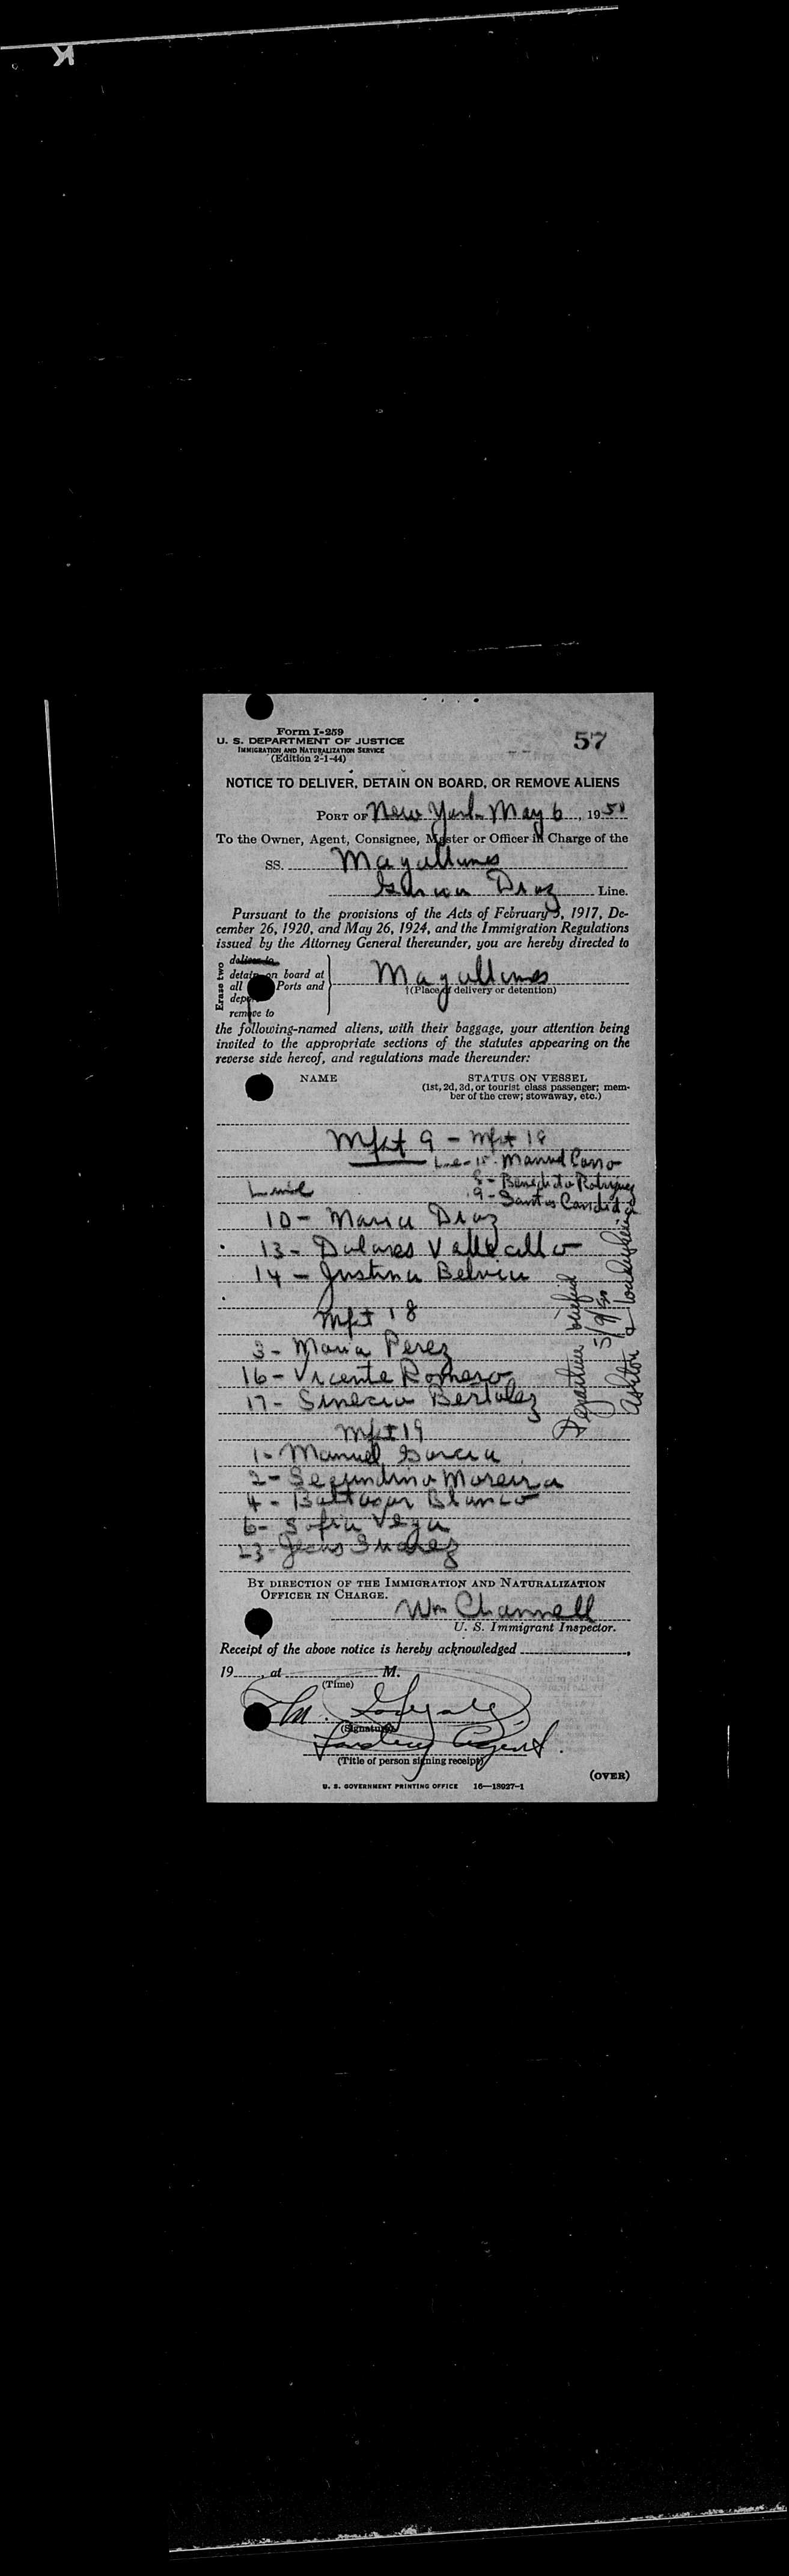 K
Form I-259
57
U. S. DEPARTMENT OF JUSTICE
IMMIGRATION AND NATURALIZATION SERVICE
(Edition 2-1-44)
NOTICE TO DELIVER, DETAIN ON BOARD, OR REMOVE ALIENS
PORT OF New York May 6, 1950
To the Owner, Agent, Consignee, Master or Officer in Charge of the
SS. Magallanes
Garcia Diaz Line.
Pursuant to the provisions of the Acts of February 5, 1917, De-
cember 26, 1920, and May 26, 1924, and the Immigration Regulations
issued by the Attorney General thereunder, you are hereby directed to
Erase two
deliver to
detain on board at
all Ports and
deport
remove to
Magallanes
†(Place of delivery or detention)
the following-named aliens, with their baggage, your attention being
invited to the appropriate sections of the statutes appearing on the
reverse side hereof, and regulations made thereunder:
NAME
STATUS ON VESSEL
(1st, 2d, 3d, or tourist class passenger; mem-
ber of the crew; stowaway, etc.)
Mfst 9 - Mfst 18
Manuel
8 - Benedicto Rodriguez
9 - Santos Candida
10 - Maria Diaz
13 - Dolores Vallecillo
14 - Justina
Mfst 18
3 - Maria Perez
16 - Vicente Romero
17 -
Mfst 19
1 - Manuel Garcia
2 - Segundino Moreira
4 - Baltasar Blanco
6 - Sofia Vega
23 - Jesus Suarez
Departure briefed
5/9/50
Ashton &
BY DIRECTION OF THE IMMIGRATION AND NATURALIZATION
OFFICER IN CHARGE.
Wm Channell
U. S. Immigrant Inspector.
Receipt of the above notice is hereby acknowledged
19, at M.
(Time)
M.
(Signature)
Landing Agent.
(Title of person signing receipt)
(OVER)
U. S. GOVERNMENT PRINTING OFFICE 16—18027-1